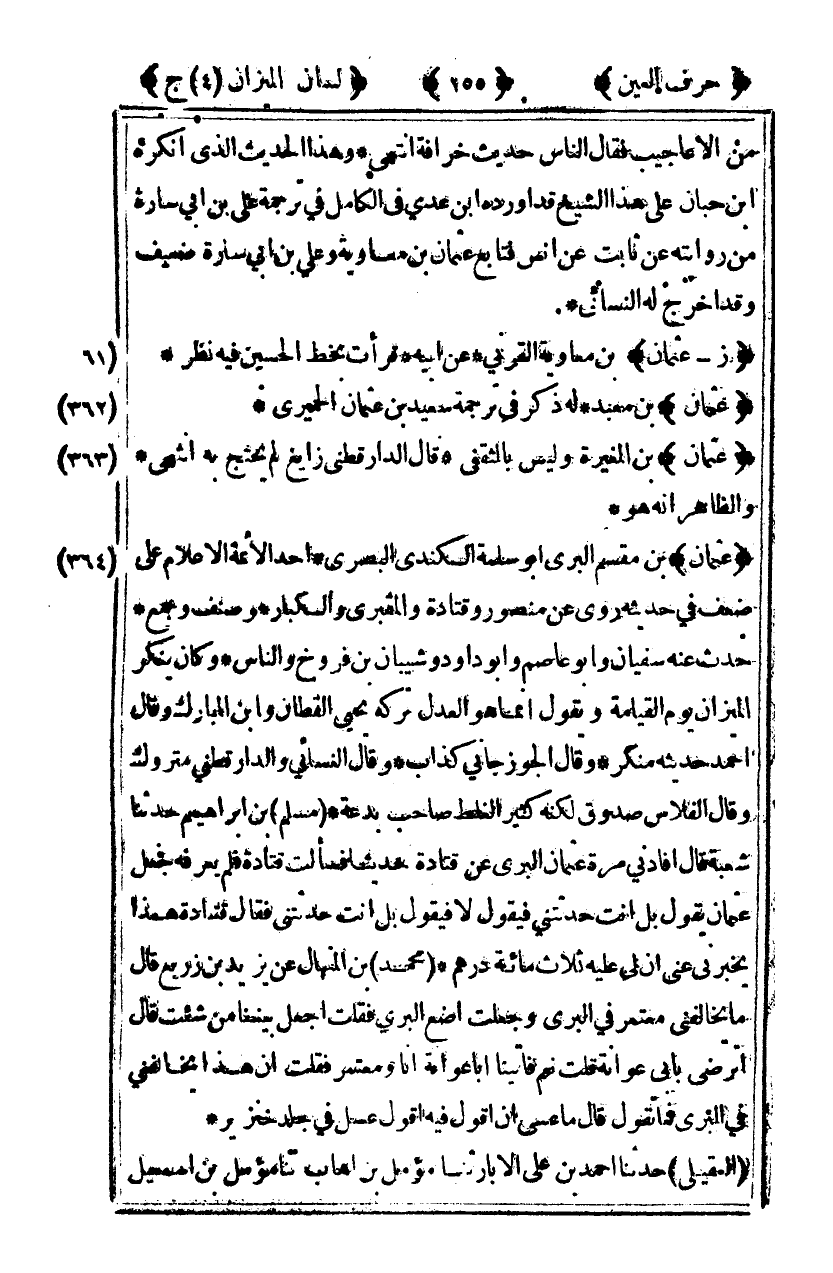 ﴿ حرف العين ﴾ ﴿ ٢٥٥ ﴾ ﴿ لسان الميزان (٤) ج ﴾
من الاعاجيب فقال الناس حديث خرافة انتهى * وهذا الحديث الذى انكره
ابن حبان على هذا الشيخ قد اورده ابن عدي فى الكامل في ترجمة على بن ابي سارة
من روايته عن ثابت عن انس فتابع عثمان بن معاوية وعلي بن ابي سارة ضعيف
وقد اخرج له النسائى * .
﴿ ز - عثمان ﴾ بن معاوية القرنى * عن ابيه * قرأت بخط الحسين فيه نظر * (٦١
﴿ عثمان ﴾ بن معبد * له ذكر في ترجمة سعيد بن عثمان الحميرى * (٣٦٢)
﴿ عثمان ﴾ بن المغيرة وليس بالثقفى * قال الدارقطنى زايغ لم يحتج به انتهى * (٣٦٣)
والظاهر انه هو *
﴿ عثمان ﴾ بن مقسم البرى ابو سلمة الكندى البصرى * احد الأئمة الاعلام على (٣٦٤)
ضعف في حديثه روى عن منصور وقتادة والمقبرى والكبار * وصنف وجمع *
حدث عنه سفيان وابو عاصم وابو داود وشيبان بن فروخ والناس * وكان ينكر
الميزان يوم القيامة و يقول انما هو العدل تركه يحيى القطان وابن المبارك وقال
احمد حديثه منكر * وقال الجوزجاني كذاب * وقال النسائي والدارقطني متروك
وقال الفلاس صدوق لكنه كثير الغلط صاحب بدعة * (مسلم) بن ابراهيم حدثنا
شعبة قال افادني مرة عثمان البرى عن قتادة بحديث فسألت قتادة فلم يعرفه فجعل
عثمان يقول بل انت حدثتني فيقول لا فيقول بل انت حدثتنى فقال قتادة هذا
يخبرنى عنى ان لي عليه ثلاث مائة درهم * (محمد) بن المنهال عن يزيد بن زريع قال
ما يخالفنى معتمر في البرى وجعلت اضع البري فقلت اجعل بيننا من شئت قال
أترضى بابى عوانة قلت نعم فاتينا ابا عوانة انا ومعتمر فقلت ان هذا يخالفني
في البرى فما تقول قال ما عسى ان اقول فيه اقول عسل في جلد خنزير *
(العقيلى) حدثنا احمد بن على الابار ثنا مؤمل بن اهاب ثنا مؤمل بن اسمعيل